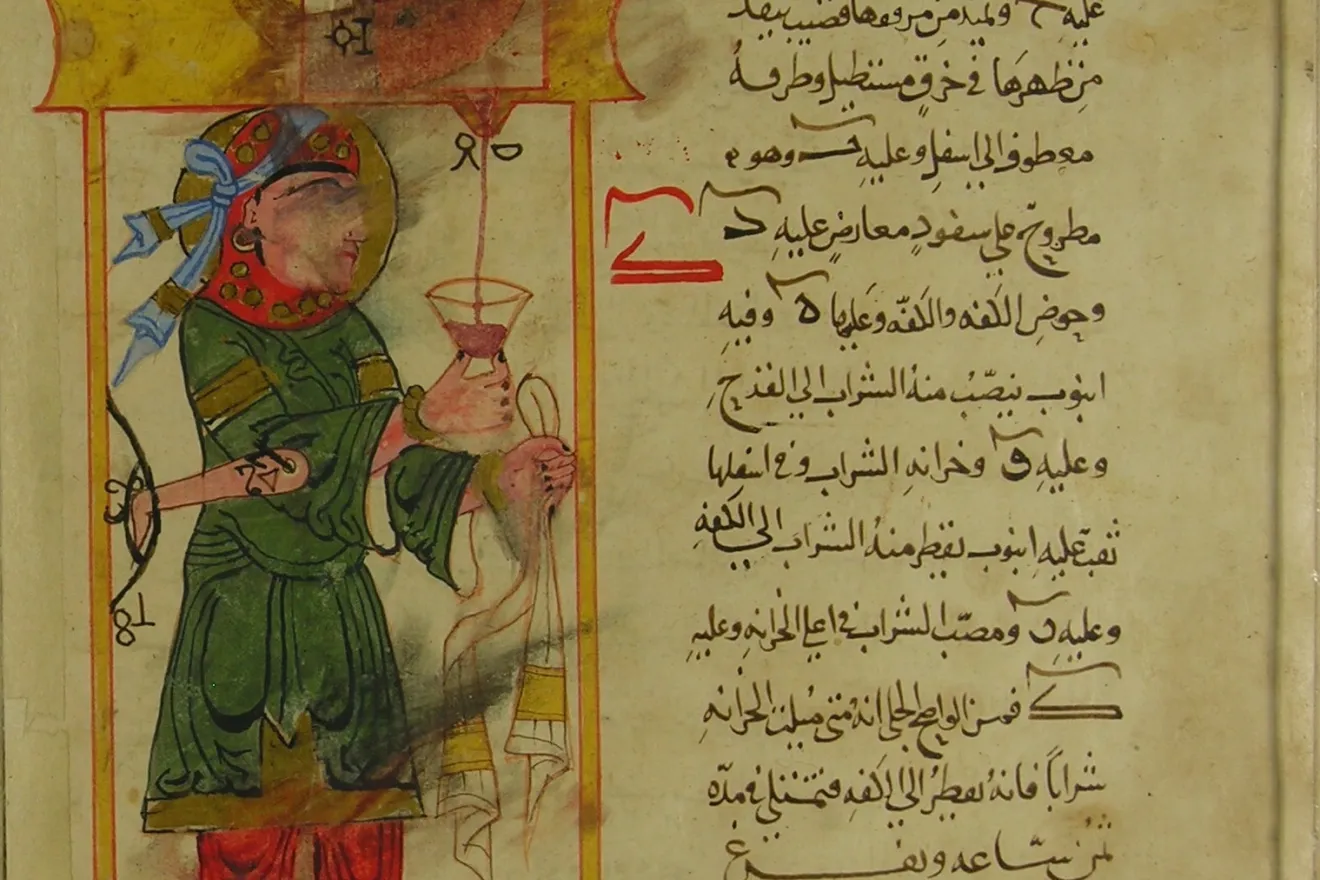 عليه ح وليمد من مرفقها قضيب ينفذ
من ظهرها في خرق مستطيل وطرفه
معطوف الي اسفل وعليه ب وهو
مطروح علي سفود معارض عليه د
وحوض الكفه والكفّه وعليها ه وفيه
انبوب ينصّب منه الشراب الي القدح
وعليه و وخزانه الشراب وفي اسفلها
ثقب عليه انبوب يقطر منه الشراب الي الكفه
وعليه ومصبّ الشراب في اعلي الخزانه وعليه
ك فمن الواضح الجلي انه متي ملئت الخزانه
شراباً فانه يقطر الي الكفه فتمتلي في مدّه
ثمن ساعه ويفرغ